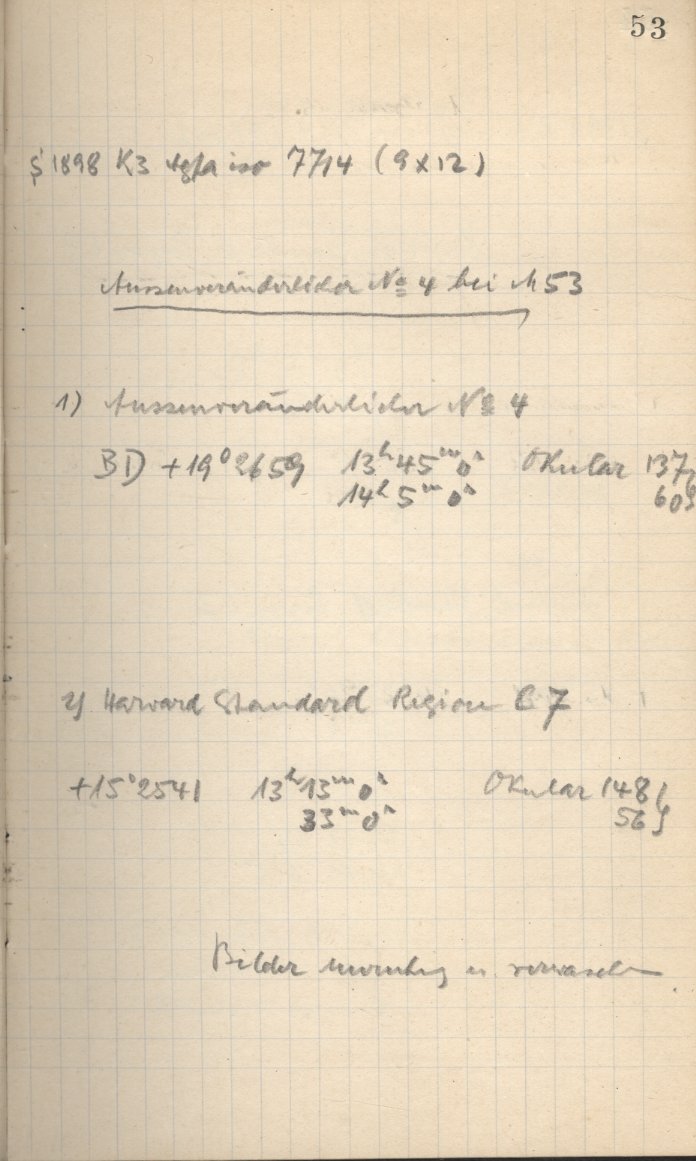 53
§ 1898 K3 Agfa iso 7714 (9 x 12)
Aussenveränderlicher No 4 bei M53
1) Aussenveränderlicher No 4
BD +19° 2659 13h 45m 0s Okular 137
14h 5m 0s 60
2) Harward Standard Region C 7
+15° 2541 13h 13m 0s Okular 148
33m 0s 56
Bilder unruhig u. verwaschen